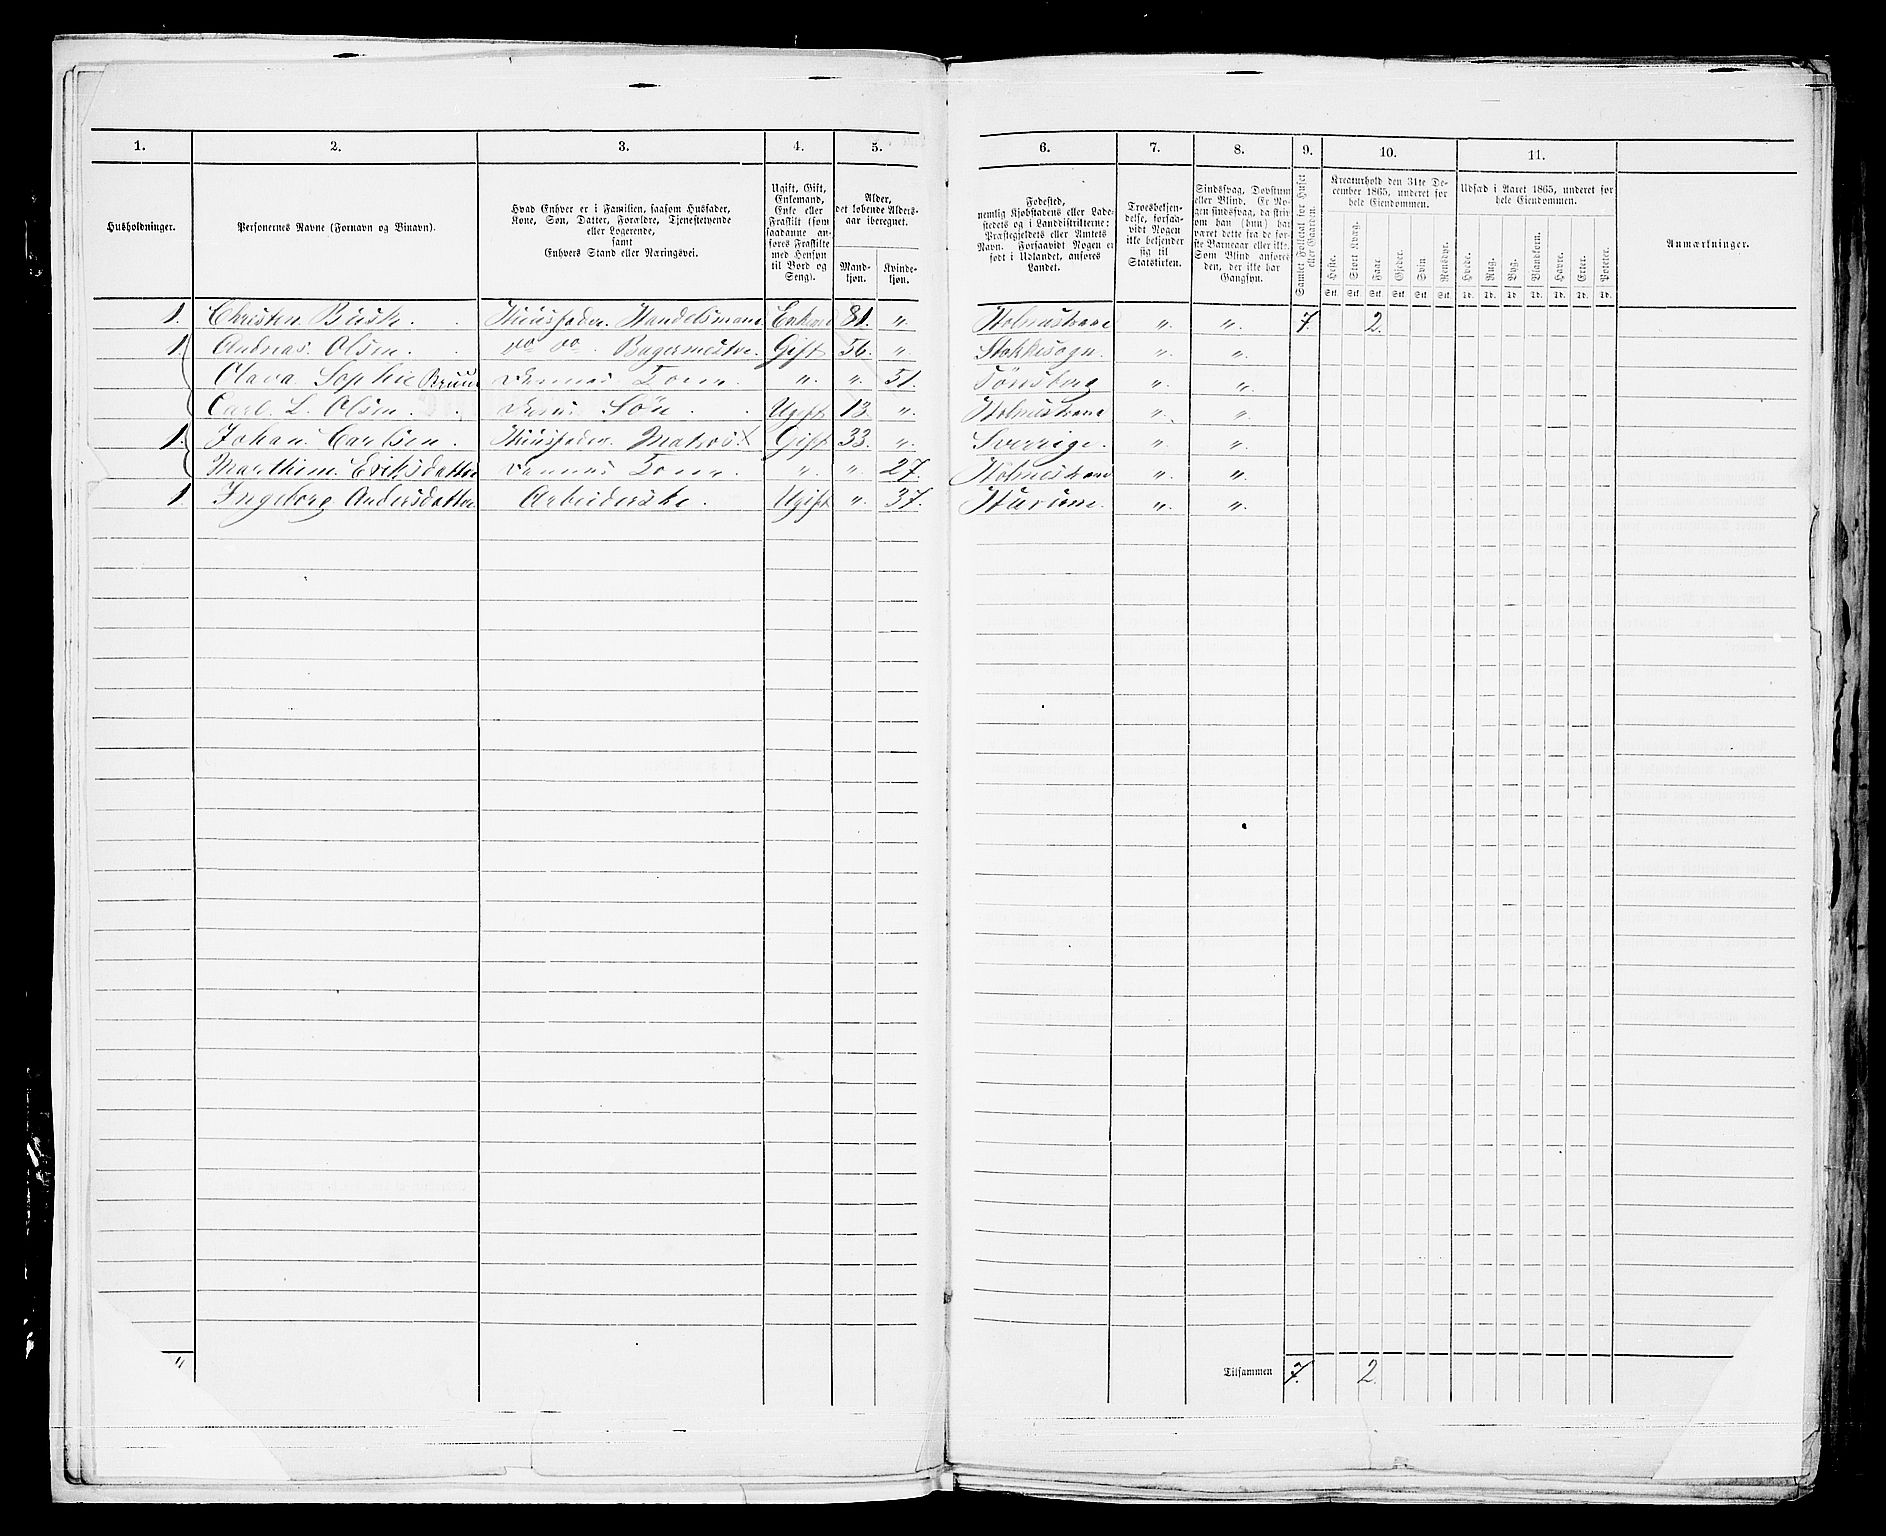 1. 2. 3. 4. 5. 6. 7. 8. 9. 10. 11.
Husholdninger.
Personernes Navne (Fornavn og Binavn).
Hvad Enhver er i Familien, saasom Husfader,
Kone, Søn, Datter, Forældre, Tjenestetyende
eller Logerende,
samt
Enhvers Stand eller Næringsvei.
Ugift, Gift,
Enkemand,
Enke eller
Fraskilt (som
saadanne an-
føres Fraskilte
med Hensyn
til Bord og
Seng).
Alder,
det løbende Alders-
aar iberegnet.
Mand-
kjøn.
Kvinde-
kjøn.
Fødested,
nemlig Kjøbstadens eller Lade-
stedets og i Landdistrikterne:
Præstegjeldets eller Amtets
Navn. Forsaavidt Nogen er
født i Udlandet, anføres
Landet.
Troesbekjen-
delse, forsaa-
vidt Nogen
ikke bekjender
sig til
Statskirken.
Sindssvag, Døvstum
eller Blind. Er No-
gen sindssvag, da skriv
om han (hun) har
været dette fra de før-
ste Barneaar eller ikke.
Som Blind anføres
den, der ikke har
Gangsyn.
Samlet Folketal for Huset
eller Gaarden.
Kreaturhold den 31te De-
cember 1865, underet for
hele Eiendommen.
Heste. Stort Kvæg. Faar. Gjeder. Svin. Rensdyr.
Stk. Stk. Stk. Stk. Stk. Stk.
Udsæd i Aaret 1865, underet for
hele Eiendommen.
Hvede. Rug. Byg. Blandkorn. Havre. Erter. Poteter.
Td. Td. Td. Td. Td. Td. Td.
Anmærkninger.
1. Christen Busk. Huusfader. Handelsmand. Enkem 81. " Holmestrand " " 7. 2.
1. Andreas Olsen. do do. Bagermester. Gift 56. " Stokkesogn. " "
Olava Sophie Bruun dennes Kone. " " 51. Tönsberg " "
Carl L. Olsen. deres Sön. Ugift 13. " Holmestrand " "
1. Johan Carlsen. Huusfader. Matros. Gift 33. " Sverrige. " "
Marthine Eriksdatter dennes Kone. " " 27. Holmestrand " "
1. Ingeborg Andersdatter. Arbeiderske. Ugift " 37. Hurum. " "
" Tilsammen 7. 2.